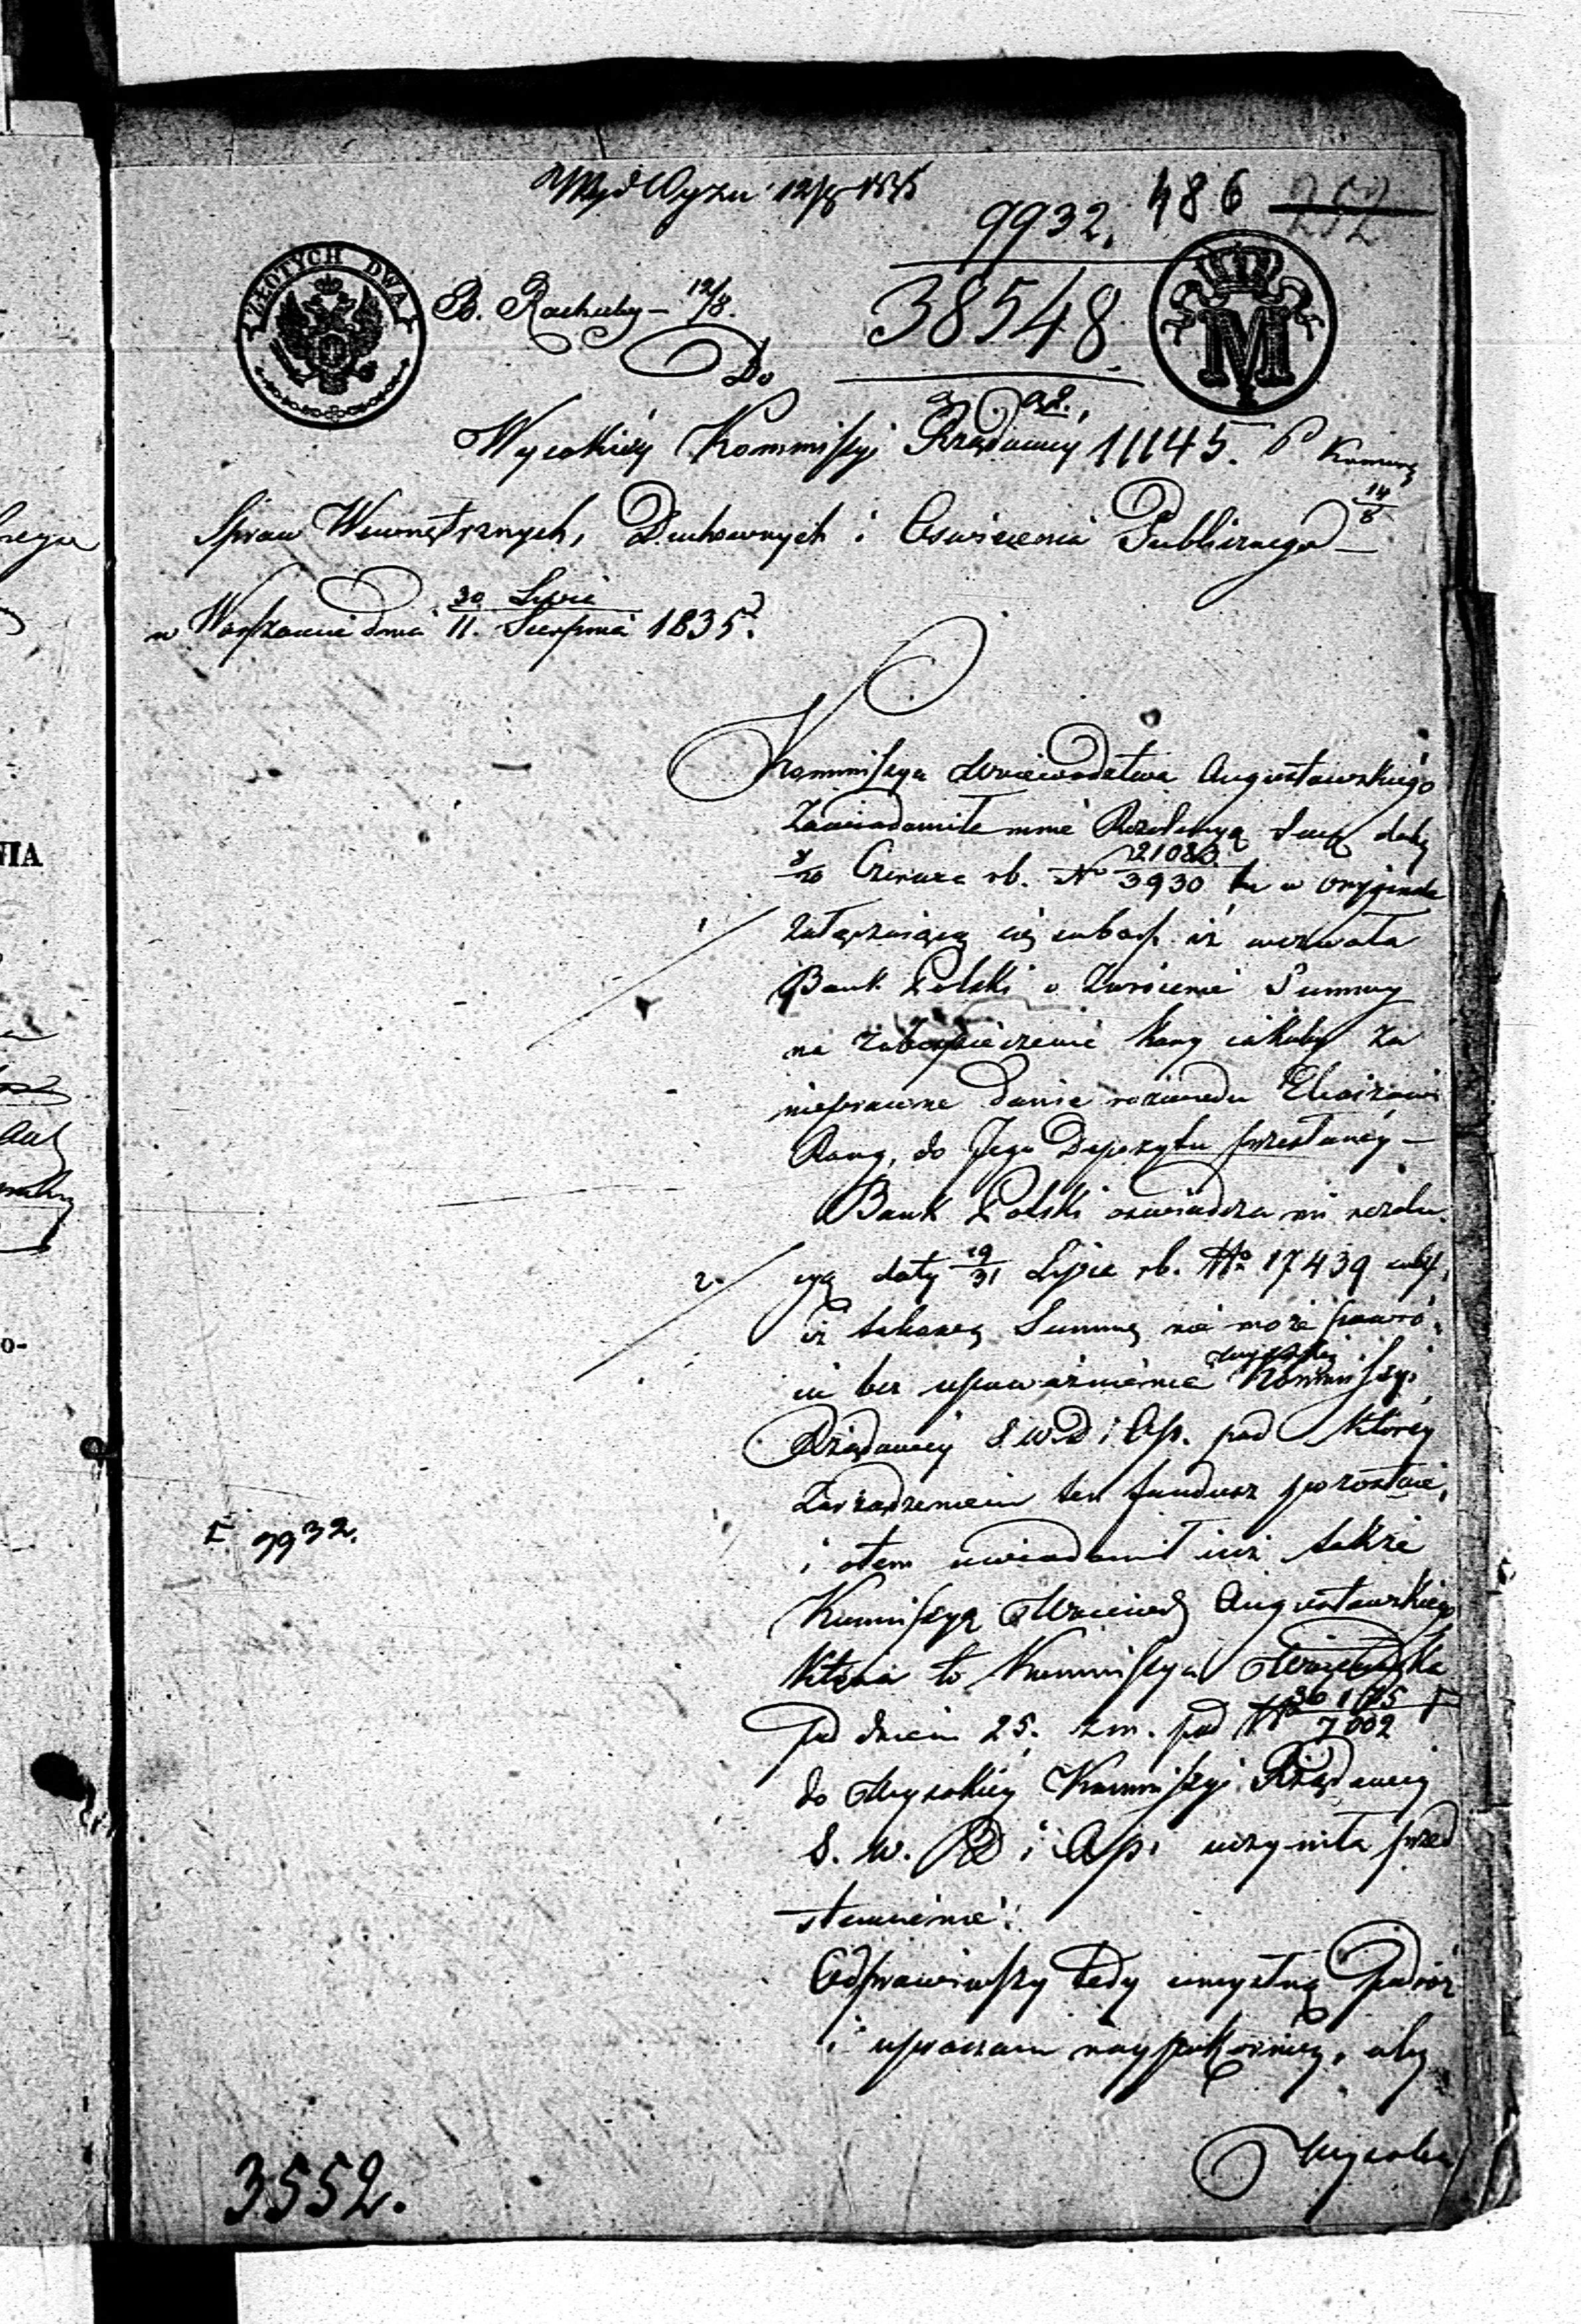 Wyd Wyzn 12/8 1835
9932. 486 252
ZŁOTYCH DWA
B. Rachuby – 12/8.
38548.
M
Do
Wysokiéy Kommissyi Rządowéy 11145.
14/8
Spraw Wewnętrznych, Duchownych i Oświecenia Publicznego –
w Warszawie dnia 30 Lipca / 11. Sierpnia 1835 r.
Kommissya Woiewodztwa Augustowskiego
zawiadomiła mnie Rezolucyą swą daty
8/20 Czerwca rb. No 21080/3930 tu w oryginale
1 załączaiącą się iż wezwała
Bank Polski o zwrócenie Summy
na zabezpieczenie kary iakoby za
nieprawne danie rozwodu
do Jego Depozytu przesłanéy –
Bank Polski oświadcza mi rezolu-
2. cyą daty 19/31 Lipca rb. No 17439
iż takową Summę nie może powró-
cić bez upoważnienia Wysokiéy Kommissyi
Rządowéy S. W. D. i Op. pod któréy
Zarządzeniem ten fundusz pozostaie,
i otem uwiadomił iuż także
9932.
Kommissyą Woiewod. Augustowskiego
która to Kommissya Woiewódzka
pod dniem 25. zm. pod No 36175/7002
do Wysokiéy Kommissyi Rządowéy
S. W. D. i Op. uczyniła przed
stawienie.
Odprawiwszy tedy umyślną Podróż
i upraszam naypokorniéy, aby
Wysoka
3552.
NIA
o-